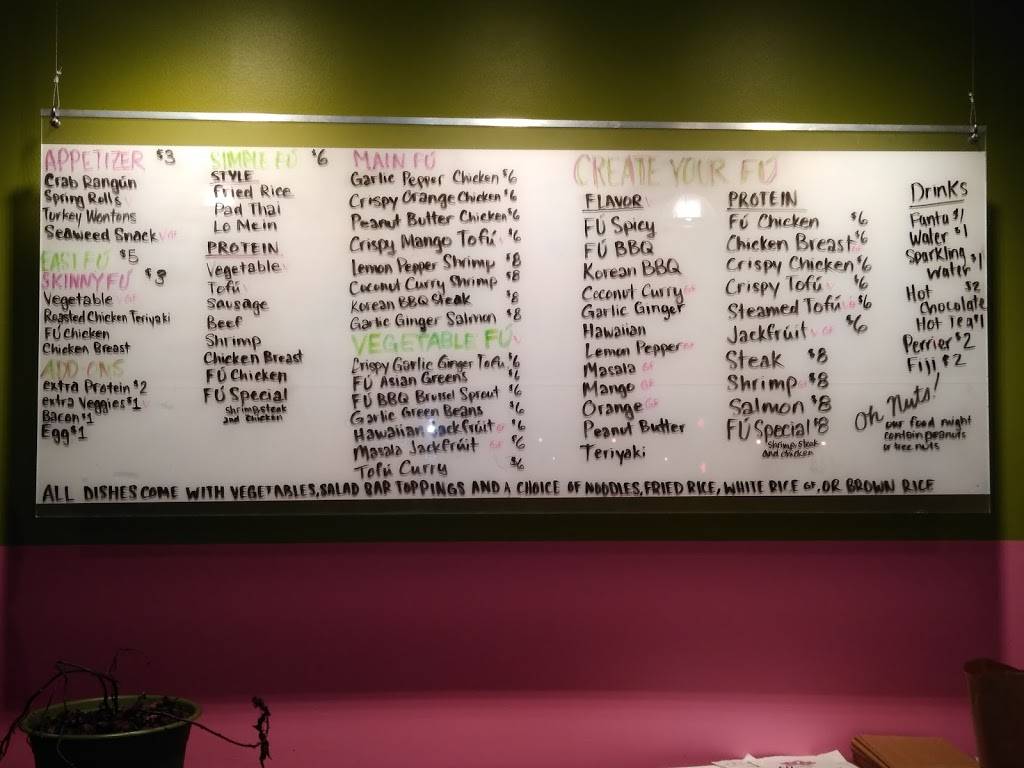 APPETIZER $3
Crab Rangún
Spring Rolls
Turkey Wontons
Seaweed Snack V GF
EASI FÚ $5
SKINNY FÚ $3
Vegetable V GF
Roasted Chicken Teriyaki
FÚ Chicken
Chicken Breast
ADD ONS
extra Protein $2
extra Veggies $1 V
Bacon $1
Egg $1
SIMPLE FÚ $6
STYLE
Fried Rice
Pad Thai
Lo Mein
PROTEIN
Vegetable V
Tofú V
Sausage
Beef
Shrimp
Chicken Breast
FÚ Chicken
FÚ Special
Shrimp, steak
and chicken
MAIN FÚ
Garlic Pepper Chicken $6
Crispy Orange Chicken $6
Peanut Butter Chicken $6
Crispy Mango Tofú V $6
Lemon Pepper Shrimp $8
Coconut Curry Shrimp $8
Korean BBQ Steak $8
Garlic Ginger Salmon $8
VEGETABLE FÚ V
Crispy Garlic Ginger Tofu $6
FÚ Asian Greens $6
FÚ BBQ Brussel Sprout $6
Garlic Green Beans $6
Hawaiian Jackfrúit GF $6
Masala Jackfrúit GF $6
Tofú Curry $6
CREATE YOUR FÚ
FLAVOR V
FÚ Spicy
FÚ BBQ
Korean BBQ
Coconut Curry GF
Garlic Ginger
Hawaiian
Lemon Pepper GF
Masala GF
Mango GF
Orange GF
Peanut Butter
Teriyaki
PROTEIN
FÚ Chicken $6
Chicken Breast GF $6
Crispy Chicken $6
Crispy Tofú V $6
Steamed Tofú V GF $6
Jackfrúit V GF $6
Steak $8
Shrimp GF $8
Salmon $8
FÚ Special $8
Shrimp, steak
and chicken
Drinks
Fanta $1
Water $1
Sparkling
Water $1
Hot $2
Chocolate
Hot Tea $1
Perrier $2
Fiji $2
Oh Nuts!
our food might
contain peanuts
or tree nuts
ALL DISHES COME WITH VEGETABLES, SALAD BAR TOPPINGS AND A CHOICE OF NOODLES, FRIED RICE, WHITE RICE GF, OR BROWN RICE